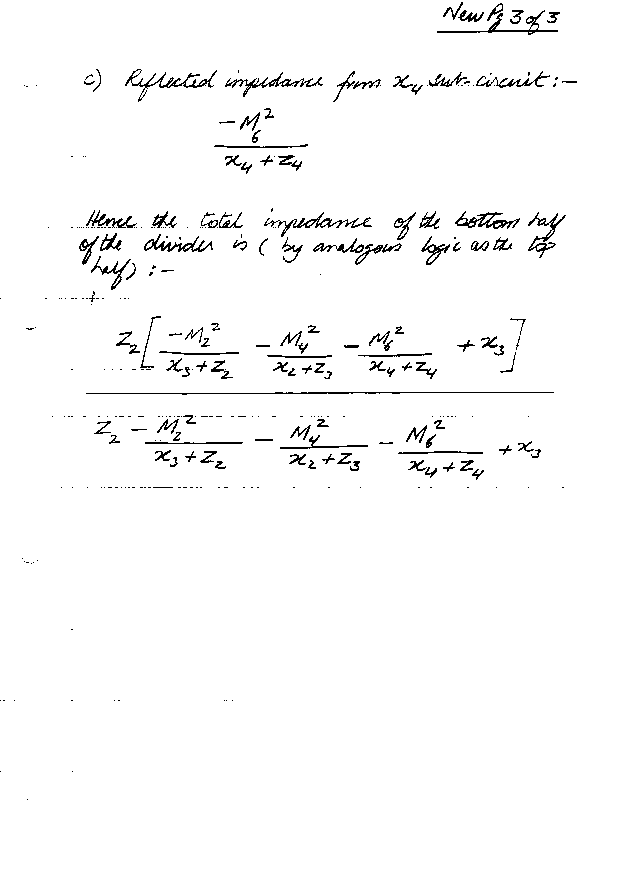 New Pg 3 of 3
c) Reflected impedance from x₄ sub-circuit :-
-M₆²
x₄ + Z₄
Hence the total impedance of the bottom half
of the divider is ( by analogous logic as the top
half) :-
Z₂ [ -M₂² / (x₃ + Z₂) - M₄² / (x₂ + Z₃) - M₆² / (x₄ + Z₄) + x₃ ]
Z₂ - M₂² / (x₃ + Z₂) - M₄² / (x₂ + Z₃) - M₆² / (x₄ + Z₄) + x₃